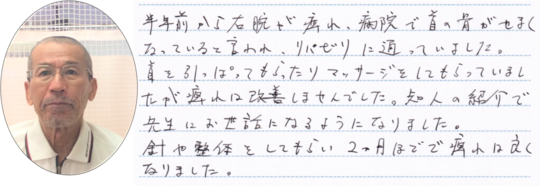 半年前から右腕が痺れ、病院で首の骨がせまく
なっていると言われ、リハビリに通っていました。
首を引っぱってもらったりマッサージをしてもらっていまし
たが痺れは改善しませんでした。知人の紹介で
先生にお世話になるようになりました。
針や整体をしてもらい2ヵ月ほどで痺れは良く
なりました。